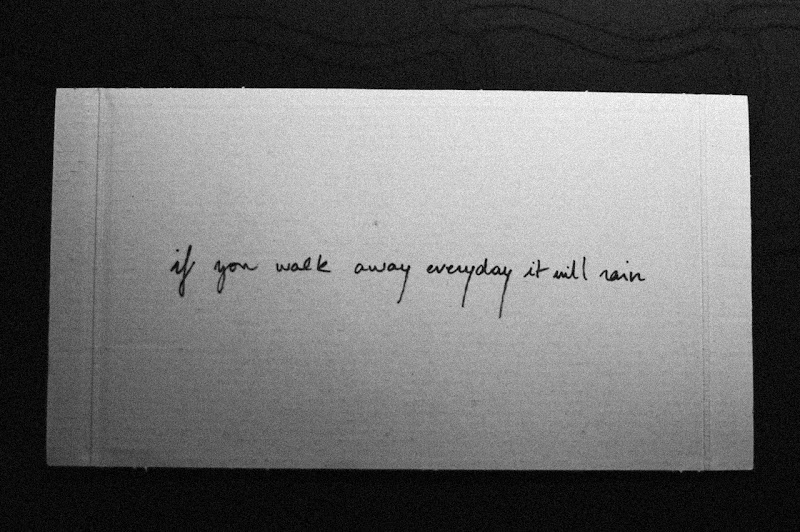 if you walk away everyday it will rain